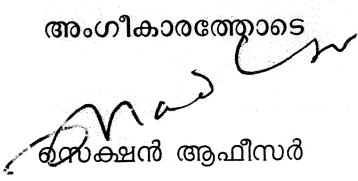 അംഗീകാരത്തോടെ
സെക്ഷൻ ആഫീസർ